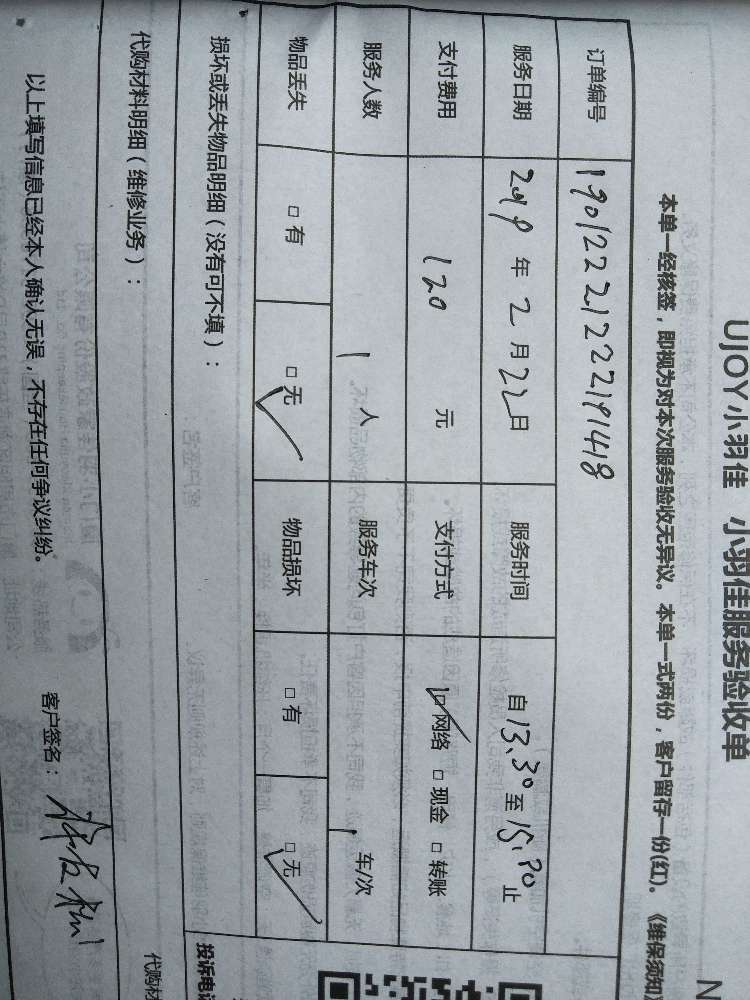 UJOY小羽佳 小羽佳服务验收单
本单一经核签，即视为对本次服务验收无异议。本单一式两份，客户留存一份(红)。《维保须知
订单编号 190122212229191418
服务日期 2019年2月22日 服务时间 自13.30至15.30止
支付费用 120元 支付方式 □网络 □现金 □转账
服务人数 1人 服务车次 1车/次
物品丢失 □有 □无 物品损坏 □有 □无
损坏或丢失物品明细（没有可不填）：
投诉电
代购材料明细（维修业务）：
代购材
以上填写信息已经本人确认无误，不存在任何争议纠纷。 客户签名：